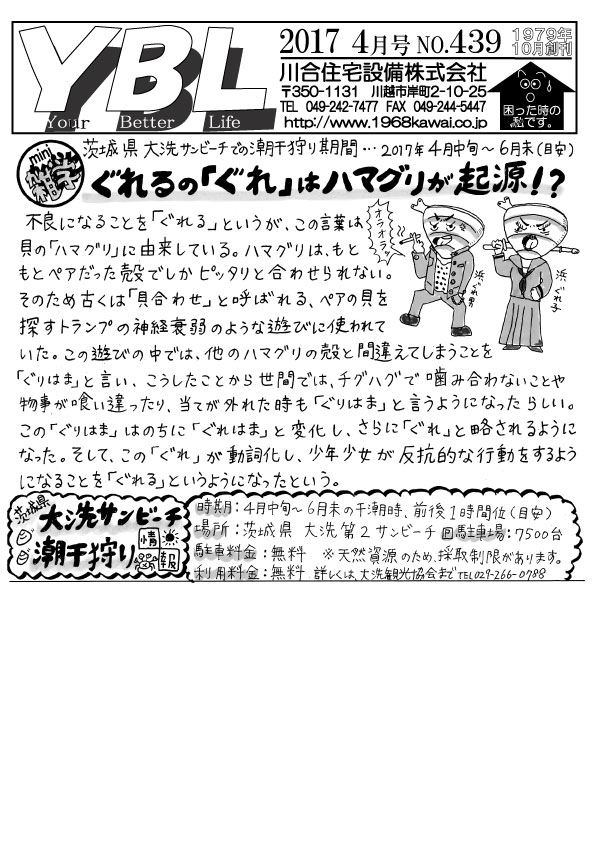 YBL
Your Better Life
2017 4月号 NO.439
1979年
10月創刊
川合住宅設備株式会社
〒350-1131 川越市岸町2-10-25
TEL 049-242-7477 FAX 049-244-5447
http://www.1968kawai.co.jp
困った時の
です。
mini
雑学
茨城県 大洗サンビーチでの潮干狩り期間…2017年4月中旬～6月末(目安)
ぐれるの「ぐれ」はハマグリが起源!?
不良になることを「ぐれる」というが、この言葉は
貝の「ハマグリ」に由来している。ハマグリは、もと
もとペアだった殻でしかピッタリと合わせられない。
そのため古くは「貝合わせ」と呼ばれる、ペアの貝を
探すトランプの神経衰弱のような遊びに使われて
いた。この遊びの中では、他のハマグリの殻と間違えてしまうことを
「ぐりはま」と言い、こうしたことから世間では、チグハグで噛み合わないことや
物事が喰い違ったり、当てが外れた時も「ぐりはま」と言うようになったらしい。
この「ぐりはま」はのちに「ぐれはま」と変化し、さらに「ぐれ」と略されるように
なった。そして、この「ぐれ」が動詞化し、少年少女が反抗的な行動をするよう
になることを「ぐれる」というようになったという。
オラオラァッ
浜ぐれ男
浜ぐれ子
茨城県
大洗サンビーチ
潮干狩り情報
時期：4月中旬～6月末の干潮時、前後1時間位(目安)
場所：茨城県 大洗第2サンビーチ 駐車場：7500台
駐車料金：無料 ※天然資源のため、採取制限があります。
利用料金：無料 詳しくは、大洗観光協会までTEL029-266-0788